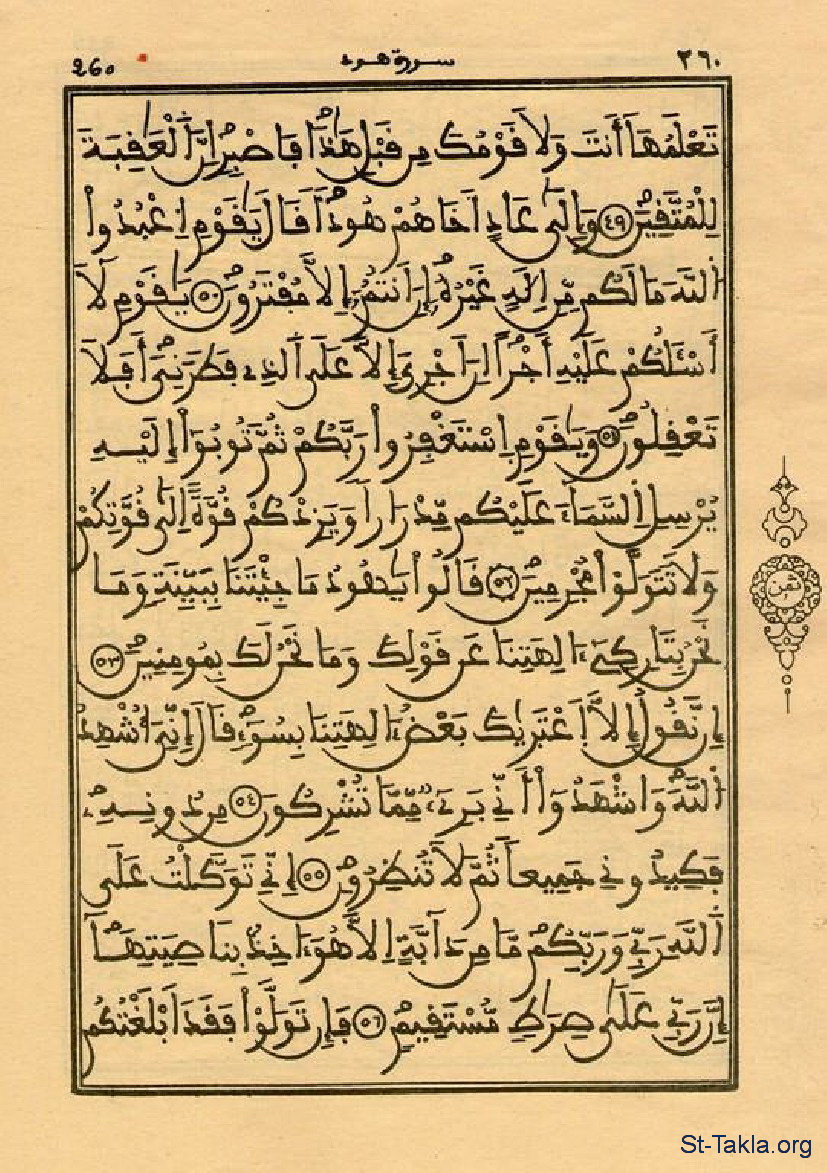 260 سورة هود ٢٦٠
تَعْلَمُهَا أَنتَ وَلَا قَوْمُكَ مِن قَبْلِ هَٰذَا فَاصْبِرْ إِنَّ الْعَٰقِبَةَ
لِلْمُتَّقِينَ ٤٩ وَإِلَىٰ عَادٍ أَخَاهُمْ هُودًا قَالَ يَٰقَوْمِ اِعْبُدُواْ
اُللَّهَ مَا لَكُم مِّنْ إِلَٰهٍ غَيْرُهُ إِنْ أَنتُمُ إِلَّا مُفْتَرُونَ ٥٠ يَٰقَوْمِ لَا
أَسْـَٔلُكُمْ عَلَيْهِ أَجْرًا اِنْ أَجْرِيَ إِلَّا عَلَى اَلذِے فَطَرَنِيَ أَفَلَا
تَعْقِلُونَ ٥١ وَيَٰقَوْمِ اِسْتَغْفِرُواْ رَبَّكُمْ ثُمَّ تُوبُوٓاْ إِلَيْهِ
يُرْسِلِ اِلسَّمَآءَ عَلَيْكُم مِّدْرَارًا وَيَزِدْكُمْ قُوَّةً اِلَىٰ قُوَّتِكُمْ
وَلَا تَتَوَلَّوْاْ مُجْرِمِينَ ٥٢ قَالُواْ يَٰهُودُ مَا جِئْتَنَا بِبَيِّنَةٍ وَمَا
نَحْنُ بِتَارِكِيٓ ءَالِهَتِنَا عَن قَوْلِكَ وَمَا نَحْنُ لَكَ بِمُومِنِينَ ٥٣
إِن نَّقُولُ إِلَّا اَعْتَرَىٰكَ بَعْضُ ءَالِهَتِنَا بِسُوٓءٍ قَالَ إِنِّيَ أُشْهِدُ
اُللَّهَ وَاشْهَدُوٓاْ أَنِّي بَرِيٓءٌ مِّمَّا تُشْرِكُونَ ٥٤ مِن دُونِهِ
فَكِيدُونِي جَمِيعًا ثُمَّ لَا تُنظِرُونِ ٥٥ إِنِّي تَوَكَّلْتُ عَلَى
اَللَّهِ رَبِّي وَرَبِّكُم مَّا مِن دَآبَّةٍ اِلَّا هُوَ ءَاخِذٌ بِنَاصِيَتِهَآ
إِنَّ رَبِّي عَلَىٰ صِرَٰطٍ مُّسْتَقِيمٍ ٥٦ فَإِن تَوَلَّوْاْ فَقَدَ اَبْلَغْتُكُم
ثمن
St-Takla.org